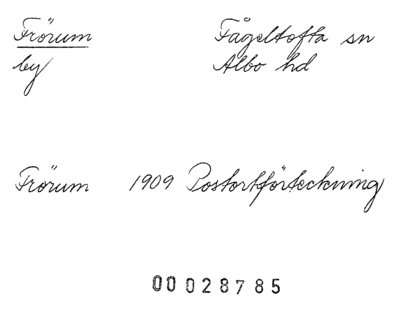 Frörum Fågeltofta sn
by Albo hd
Frörum 1909 Postortförteckning
00028785